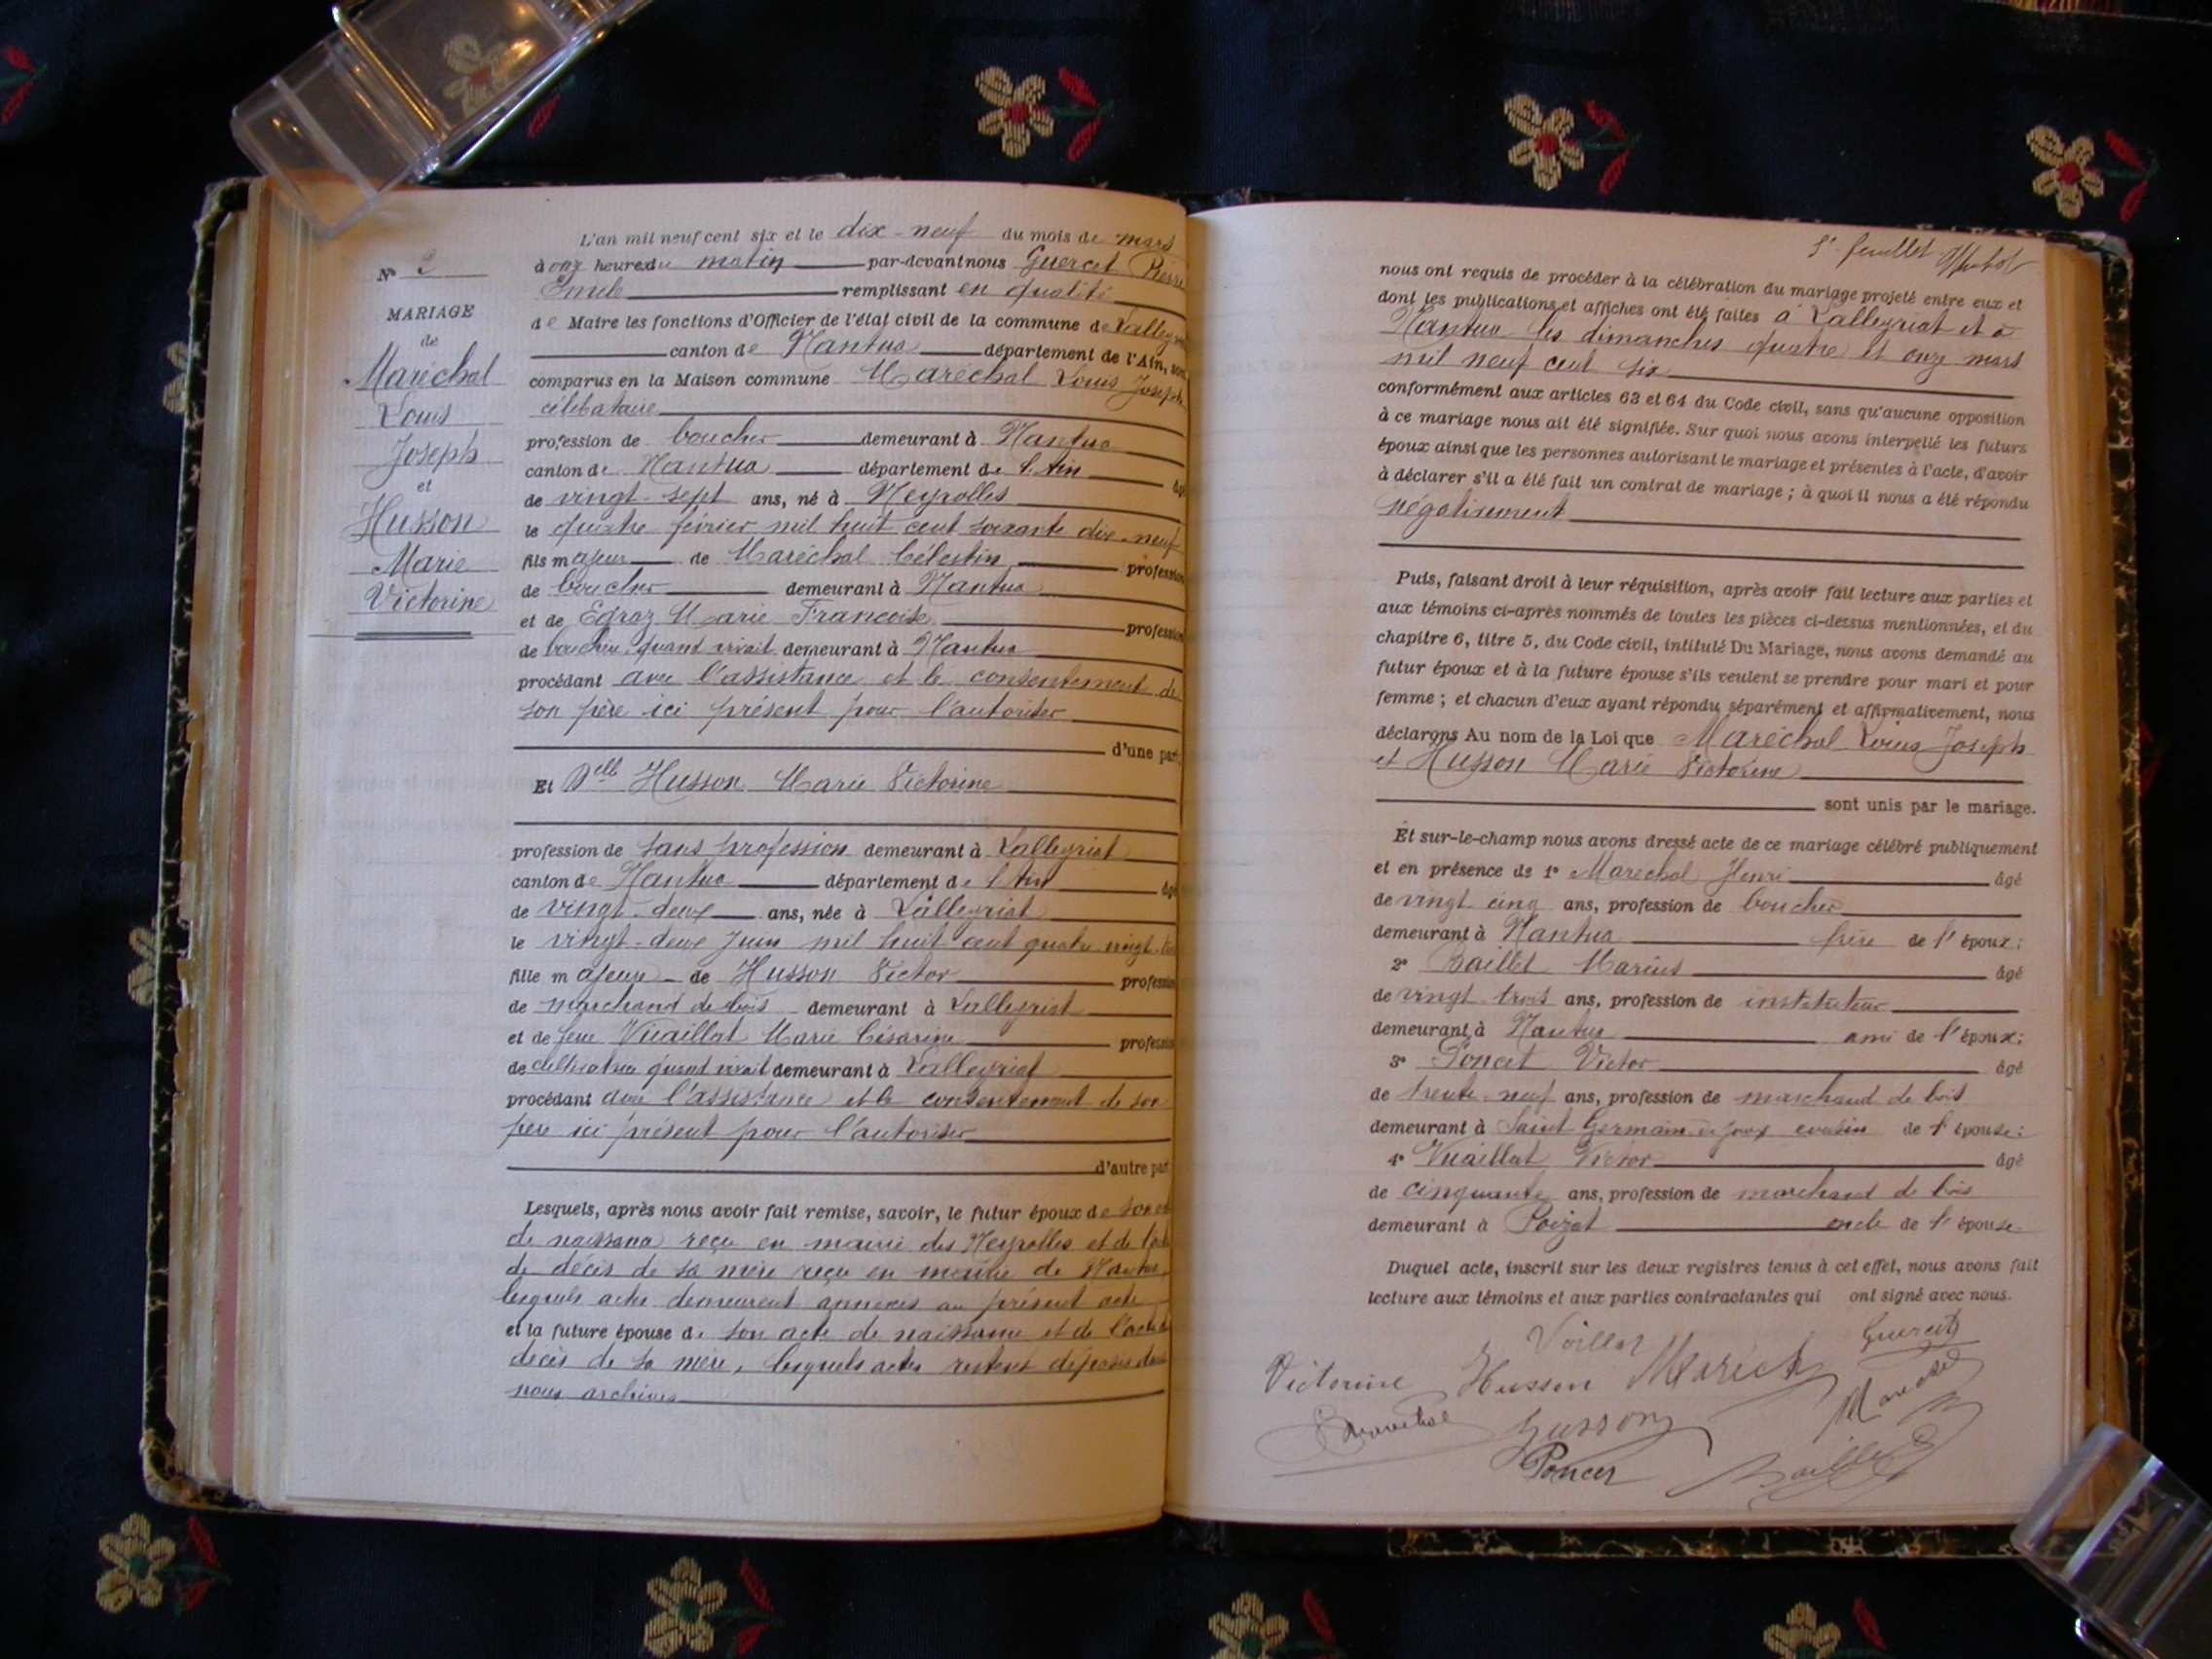 N° 3
MARIAGE
de
Maréchal
Louis
Joseph
et
Husson
Marie
Victorine
L'an mil neuf cent six et le dix-neuf du mois de mars
à onze heures du matin par-devant nous Guercet Pierre
Emile remplissant en qualité
de Maire les fonctions d'Officier de l'état civil de la commune de Lalleyriat
canton de Nantua département de l'Ain, sont
comparus en la Maison commune Maréchal Louis Joseph
célibataire
profession de boucher demeurant à Nantua
canton de Nantua département de l'Ain âgé
de vingt-sept ans, né à Neyrolles
le quatre février mil huit cent soixante dix-neuf
fils majeur de Maréchal Célestin profession
de boucher demeurant à Nantua
et de Edroz Marie Françoise profession
de bouchère quand vivait demeurant à Nantua
procédant avec l'assistance et le consentement de
son père ici présent pour l'autoriser
d'une part
Et Delle Husson Marie Victorine
profession de sans profession demeurant à Lalleyriat
canton de Nantua département de l'Ain âgé
de vingt-deux ans, née à Lalleyriat
le vingt-deux Juin mil huit cent quatre vingt-trois
fille majeure de Husson Victor profession
de marchand de bois demeurant à Lalleyriat
et de feue Vuaillat Marie Césarine profession
de cultivatrice quand vivait demeurant à Lalleyriat
procédant avec l'assistance et le consentement de son
père ici présent pour l'autoriser
d'autre part
Lesquels, après nous avoir fait remise, savoir, le futur époux de son acte
de naissance reçu en mairie des Neyrolles et de l'acte
de décès de sa mère reçu en mairie de Nantua,
lesquels actes demeurent annexés au présent acte
et la future épouse de son acte de naissance et de l'acte de
décès de sa mère, lesquels actes restent déposés dans
nous archives
5e feuillet
nous ont requis de procéder à la célébration du mariage projeté entre eux et
dont les publications et affiches ont été faites à Lalleyriat et à
Nantua les dimanches quatre et onze mars
mil neuf cent six
conformément aux articles 63 et 64 du Code civil, sans qu'aucune opposition
à ce mariage nous ait été signifiée. Sur quoi nous avons interpellé les futurs
époux ainsi que les personnes autorisant le mariage et présentes à l'acte, d'avoir
à déclarer s'il a été fait un contrat de mariage ; à quoi il nous a été répondu
négativement
Puis, faisant droit à leur réquisition, après avoir fait lecture aux parties et
aux témoins ci-après nommés de toutes les pièces ci-dessus mentionnées, et du
chapitre 6, titre 5, du Code civil, intitulé Du Mariage, nous avons demandé au
futur époux et à la future épouse s'ils veulent se prendre pour mari et pour
femme ; et chacun d'eux ayant répondu séparément et affirmativement, nous
déclarons Au nom de la Loi que Maréchal Louis Joseph
et Husson Marie Victorine
sont unis par le mariage.
Et sur-le-champ nous avons dressé acte de ce mariage célébré publiquement
et en présence de 1° Maréchal Henri âgé
de vingt cinq ans, profession de boucher
demeurant à Nantua frère de l'époux ;
2° Baillet Marius âgé
de vingt-trois ans, profession de instituteur
demeurant à Nantua ami de l'époux ;
3° Poncet Victor âgé
de trente-neuf ans, profession de marchand de bois
demeurant à Saint Germain de Joux cousin de l'épouse ;
4° Vuaillat Victor âgé
de cinquante ans, profession de marchand de bois
demeurant à Poizat oncle de l'épouse
Duquel acte, inscrit sur les deux registres tenus à cet effet, nous avons fait
lecture aux témoins et aux parties contractantes qui ont signé avec nous.
Guercet
Victorine Husson
Husson
Poncet